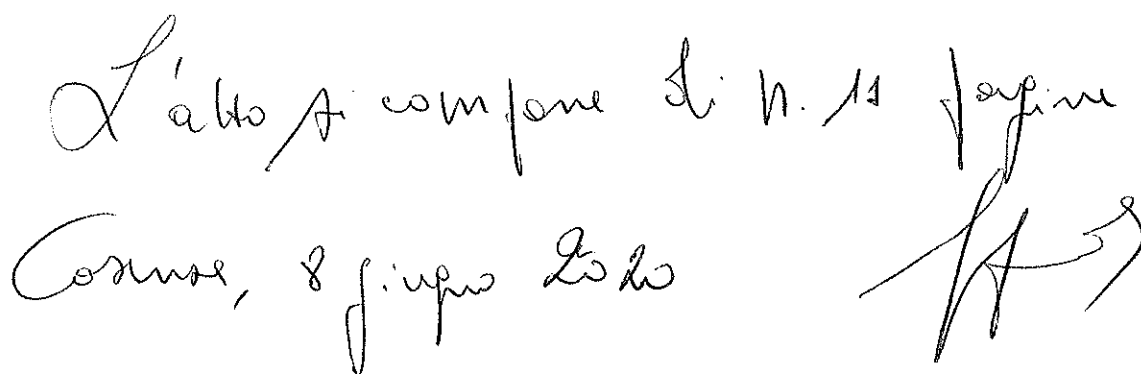 L'atto si compone di n. 11 pagine
Cosenza, 8 giugno 2020